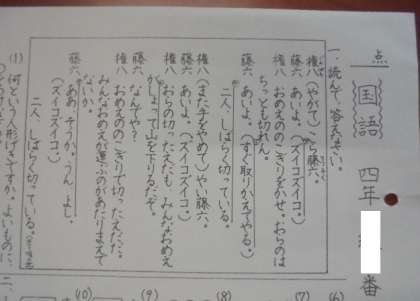 点
国語
四年
番
一、読んで、答えなさい。
権八(やがて)こら藤六。
藤六 あいよ。(ズイコズイコ。)
権八 おめえののこぎりをかせ。おらのは
ちっとも切れん。
藤六 あいよ。(すぐ取りかえてやる。)
二人、しばらく切っている。
権八(また手をやめて)やい藤六。
藤六 あいよ。(ズイコズイコ。)
権八 おらの切ったえだも、みんなおめえ
がしょって山を下りるだぞ。
藤六 なんでや?
権八 おめえののこぎりで切ったえだだ。
みんなおめえが運ぶのがあたりまえで
ないか。
藤六 ああ、そうか。うん、よし。
(ズイコズイコ。)
二人、しばらく切っている。
(1) 何という人形げきですか。よいものに
二、
(6)
(7)
(8)
(9)
(10)